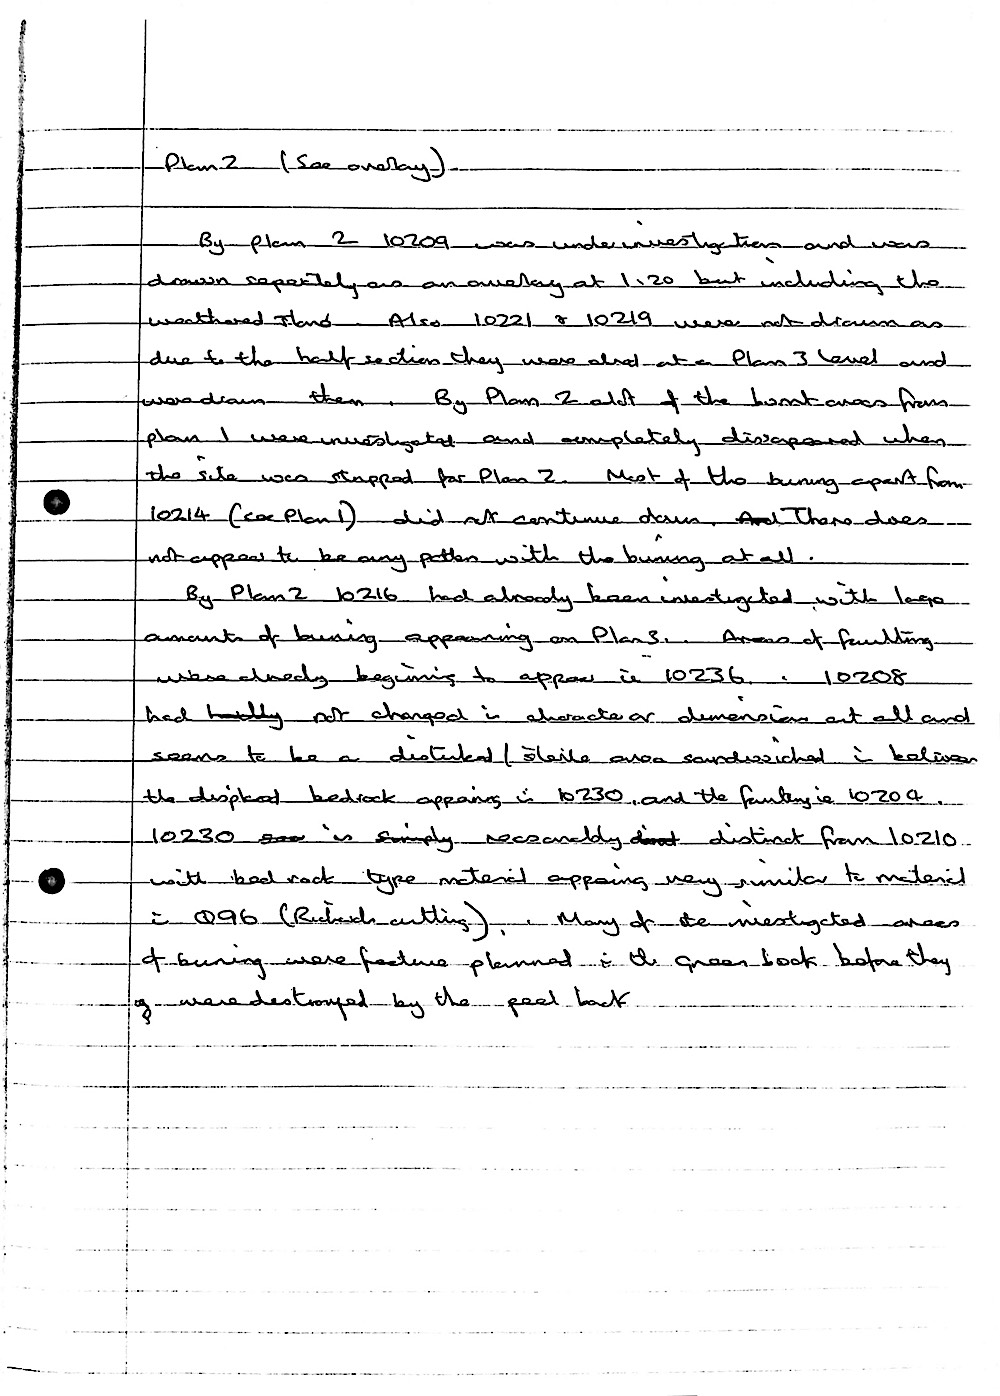 Plan 2 (See overlay)
By plan 2 10209 was under investigation and was
drawn sepeately as an overlay at 1:20 but including the
weathered Island. Also 10221 & 10219 were not drawn as
due to the half section they were alred at a Plan 3 level and
were drawn then. By Plan 2 alot of the burnt areas from
plan 1 were investigated and completely dissapeared when
the site was stripped for Plan 2. Most of the burning apart from
10214 (see Plan 1) did not continue down. And There does
not appear to be any pattern with the burning at all.
By Plan 2 10216 had already been investigated, with large
amounts of burning appearing on Plan 3. Areas of faulting
were already beginning to appear ie 10236. 10208
had not changed in character or dimensions at all and
seems to be a disturbed / sterile area sandwiched in between
the displaced bedrock appearing in 10230, and the faulting ie 10204.
10230 is simply reasonably distinct from 10210
with bed rock type material appearing very similar to material
in Q96 (Richards cutting). Many of the investigated areas
of burning were feature planned in the green book before they
were destroyed by the peel back